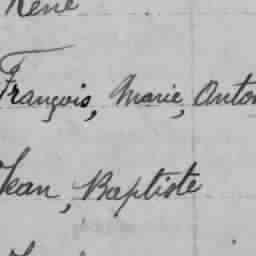 René
François, Marie, Anton
Jean, Baptiste